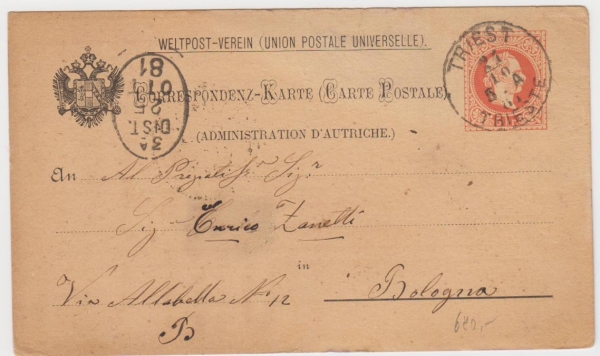 WELTPOST-VEREIN (UNION POSTALE UNIVERSELLE).
TRIEST
TRIESTE
CORRESPONDENZ-KARTE (CARTE POSTALE)
(ADMINISTRATION D'AUTRICHE.)
3A
DIST.
25
81
An Al Sigr
Sig Enrico Zanetti
in
Via Allabella No 12 Bologna
B
680,-